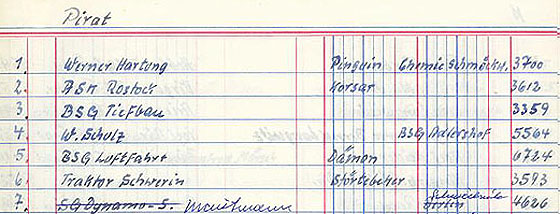 Pirat
1 Werner Hartung Pinguin Chemie Schmöckw. 3700
2. ASK Rostock Korsar 3612
3. BSG Tiefbau 3359
4 W. Schulz BSG Adlershof 5564
5. BSG Luftfahrt Dämon 6724
6. Traktor Schwerin Störtebeker 3593
7. SG Dynamo-S. 4626